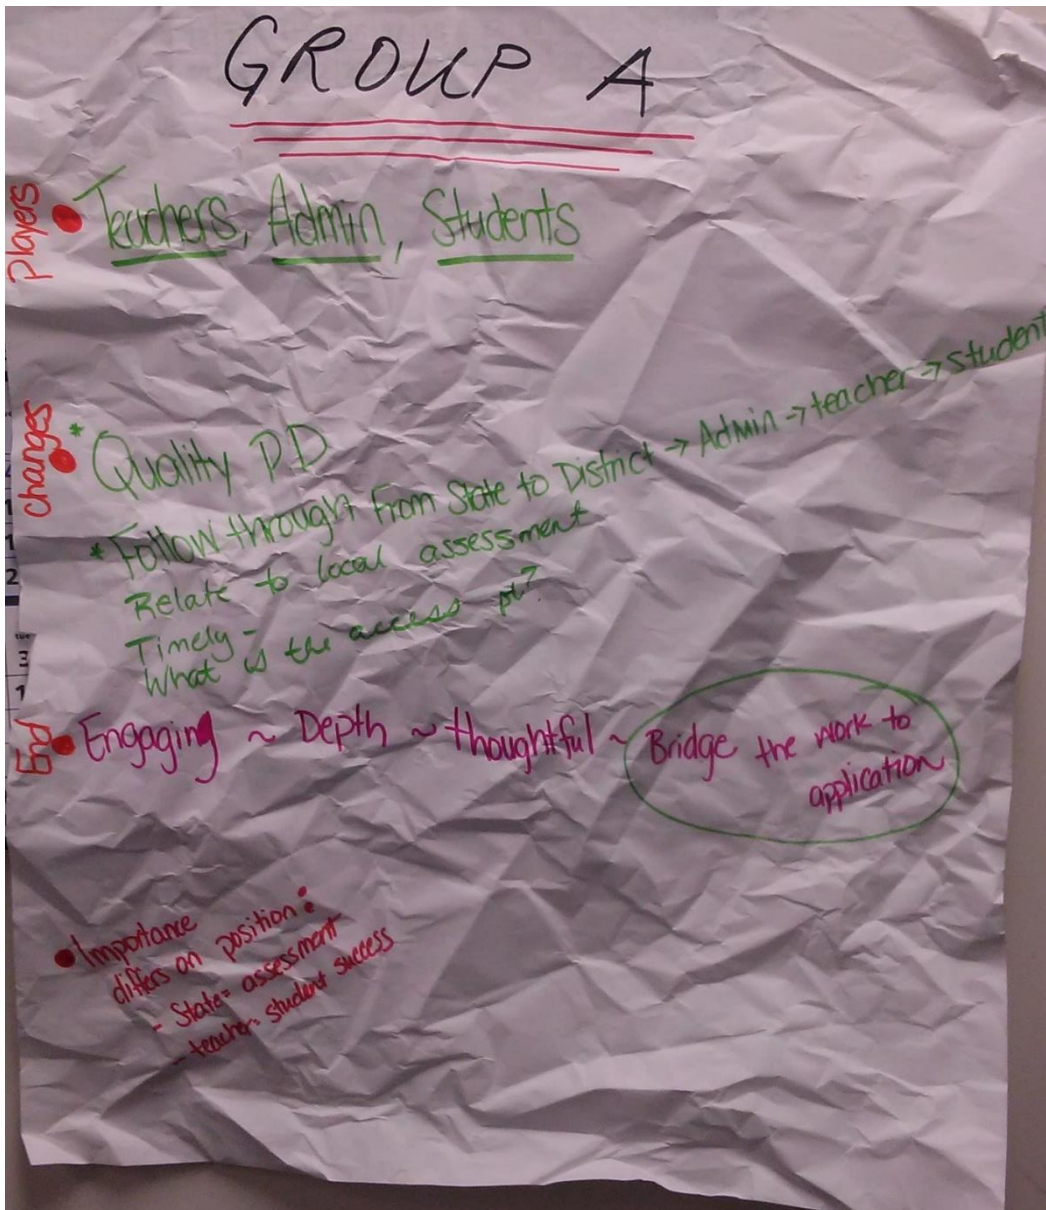 GROUP A
Players
Teachers, Admin, Students
changes
* Quality PD
* Follow through from State to District → Admin → teacher → student
Relate to local assessment
Timely -
What is the access pt?
End
Engaging ~ Depth ~ thoughtful ~ Bridge the work to
application
Importance
differs on position:
- State= assessment
- teacher= student success